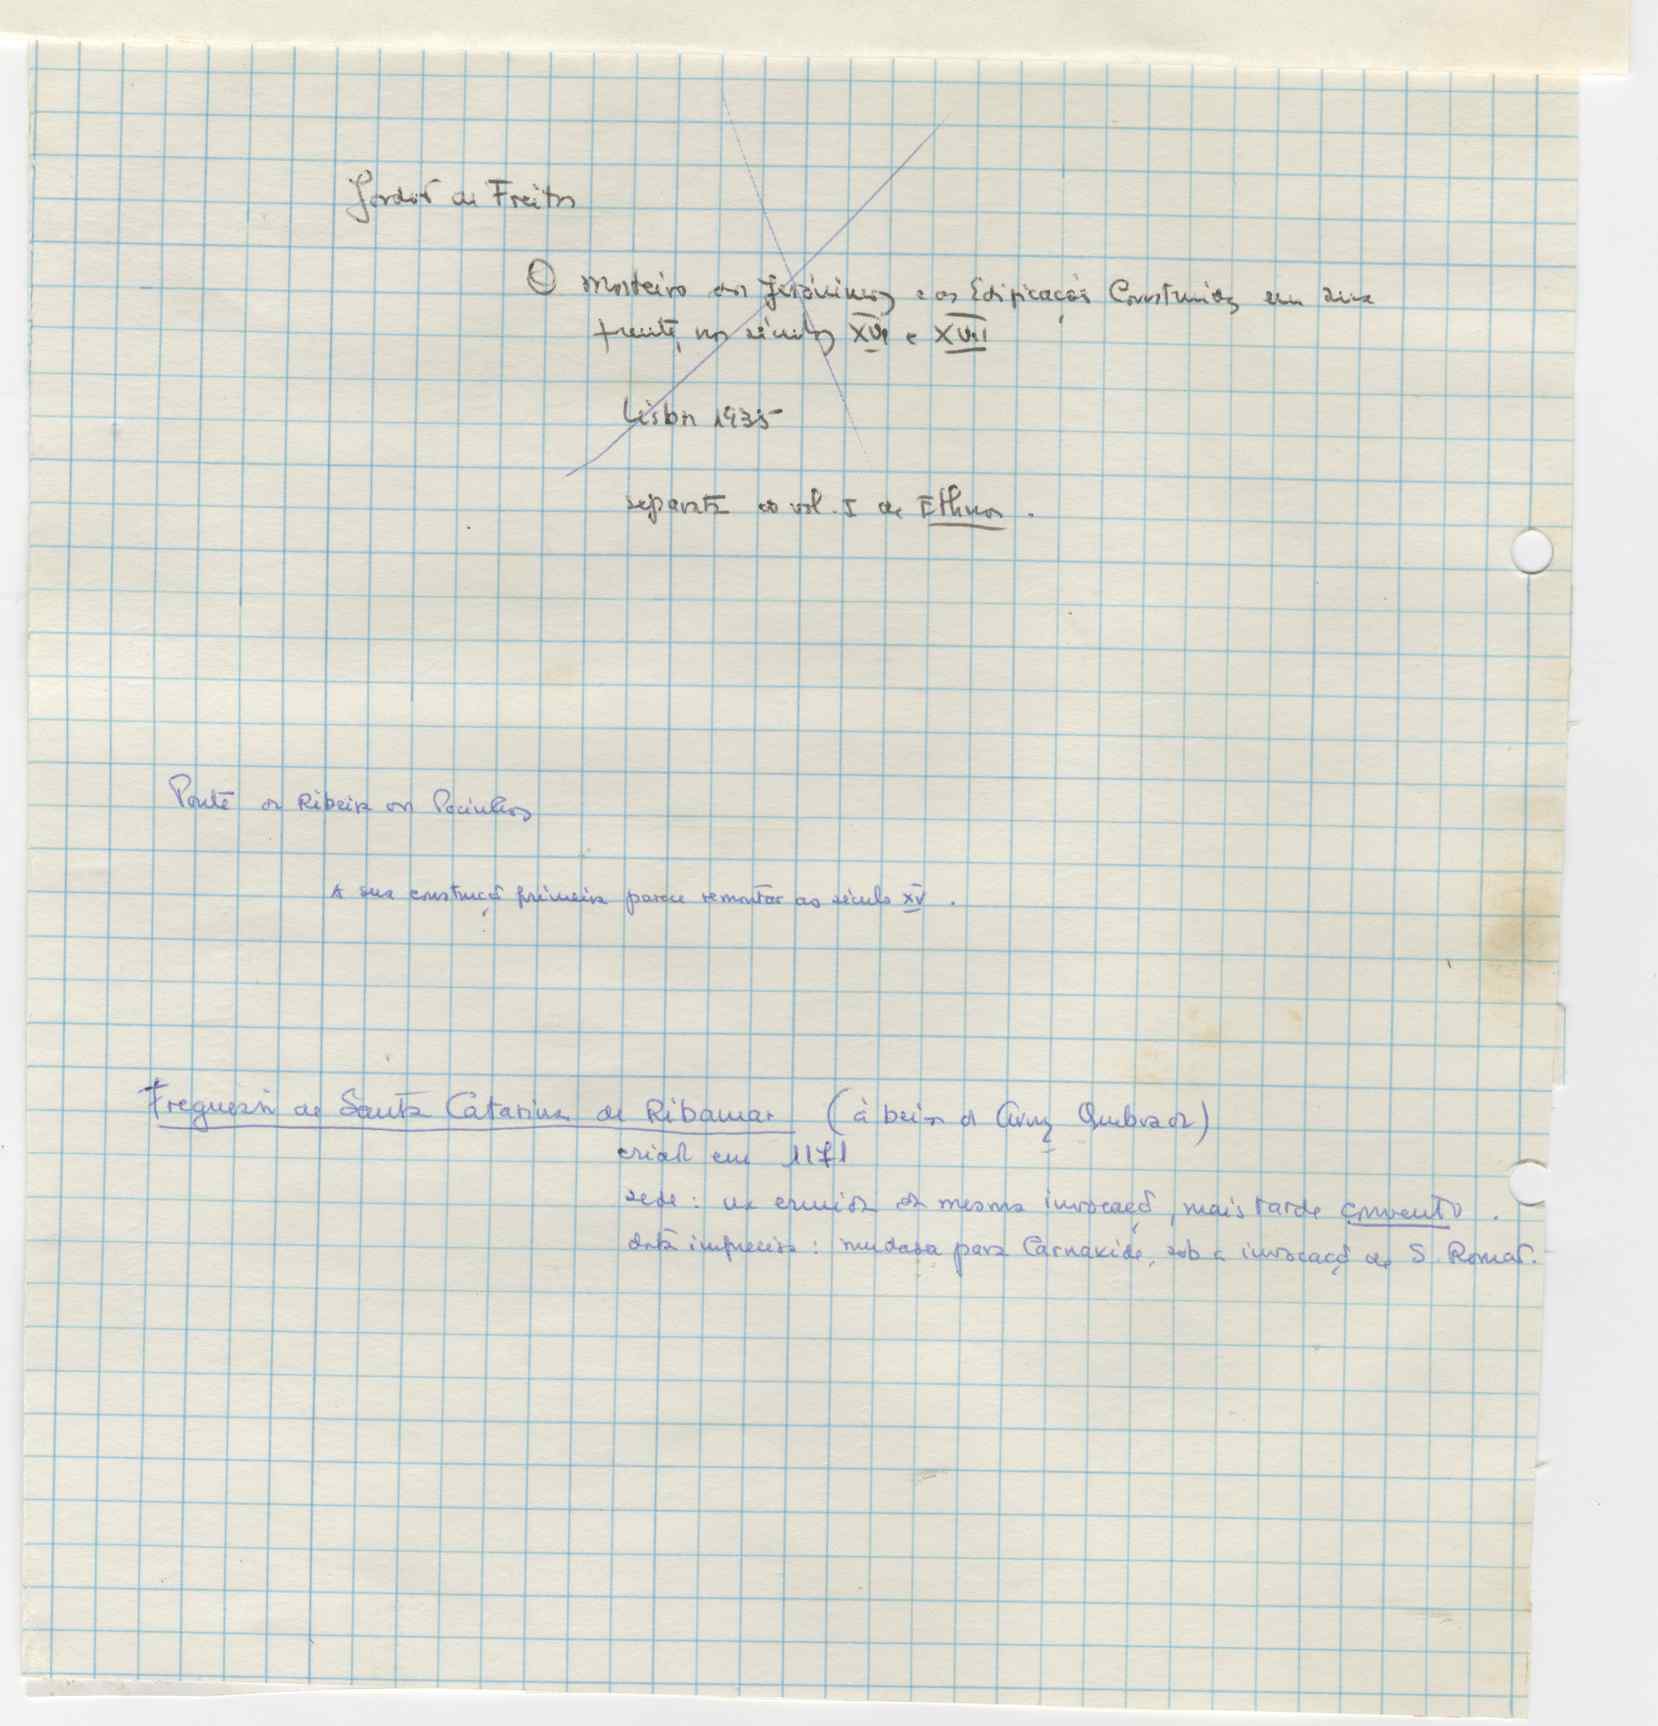 Jordão de Freitas
O Mosteiro dos Jerónimos e as Edificações Construídas em sua
frente, nos séculos XVI e XVII
Lisboa 1935
separata do vol. I de Ethnos.
Ponte da Ribeira dos Pocinhos
A sua construção primeira parece remontar ao século XV.
Freguesia de Santa Catarina de Ribamar (à beira da Cruz Quebrada)
criada em 1171
sede: na ermida da mesma invocação, mais tarde convento.
data imprecisa: mudada para Carnaxide, sob a invocação de S. Romão.